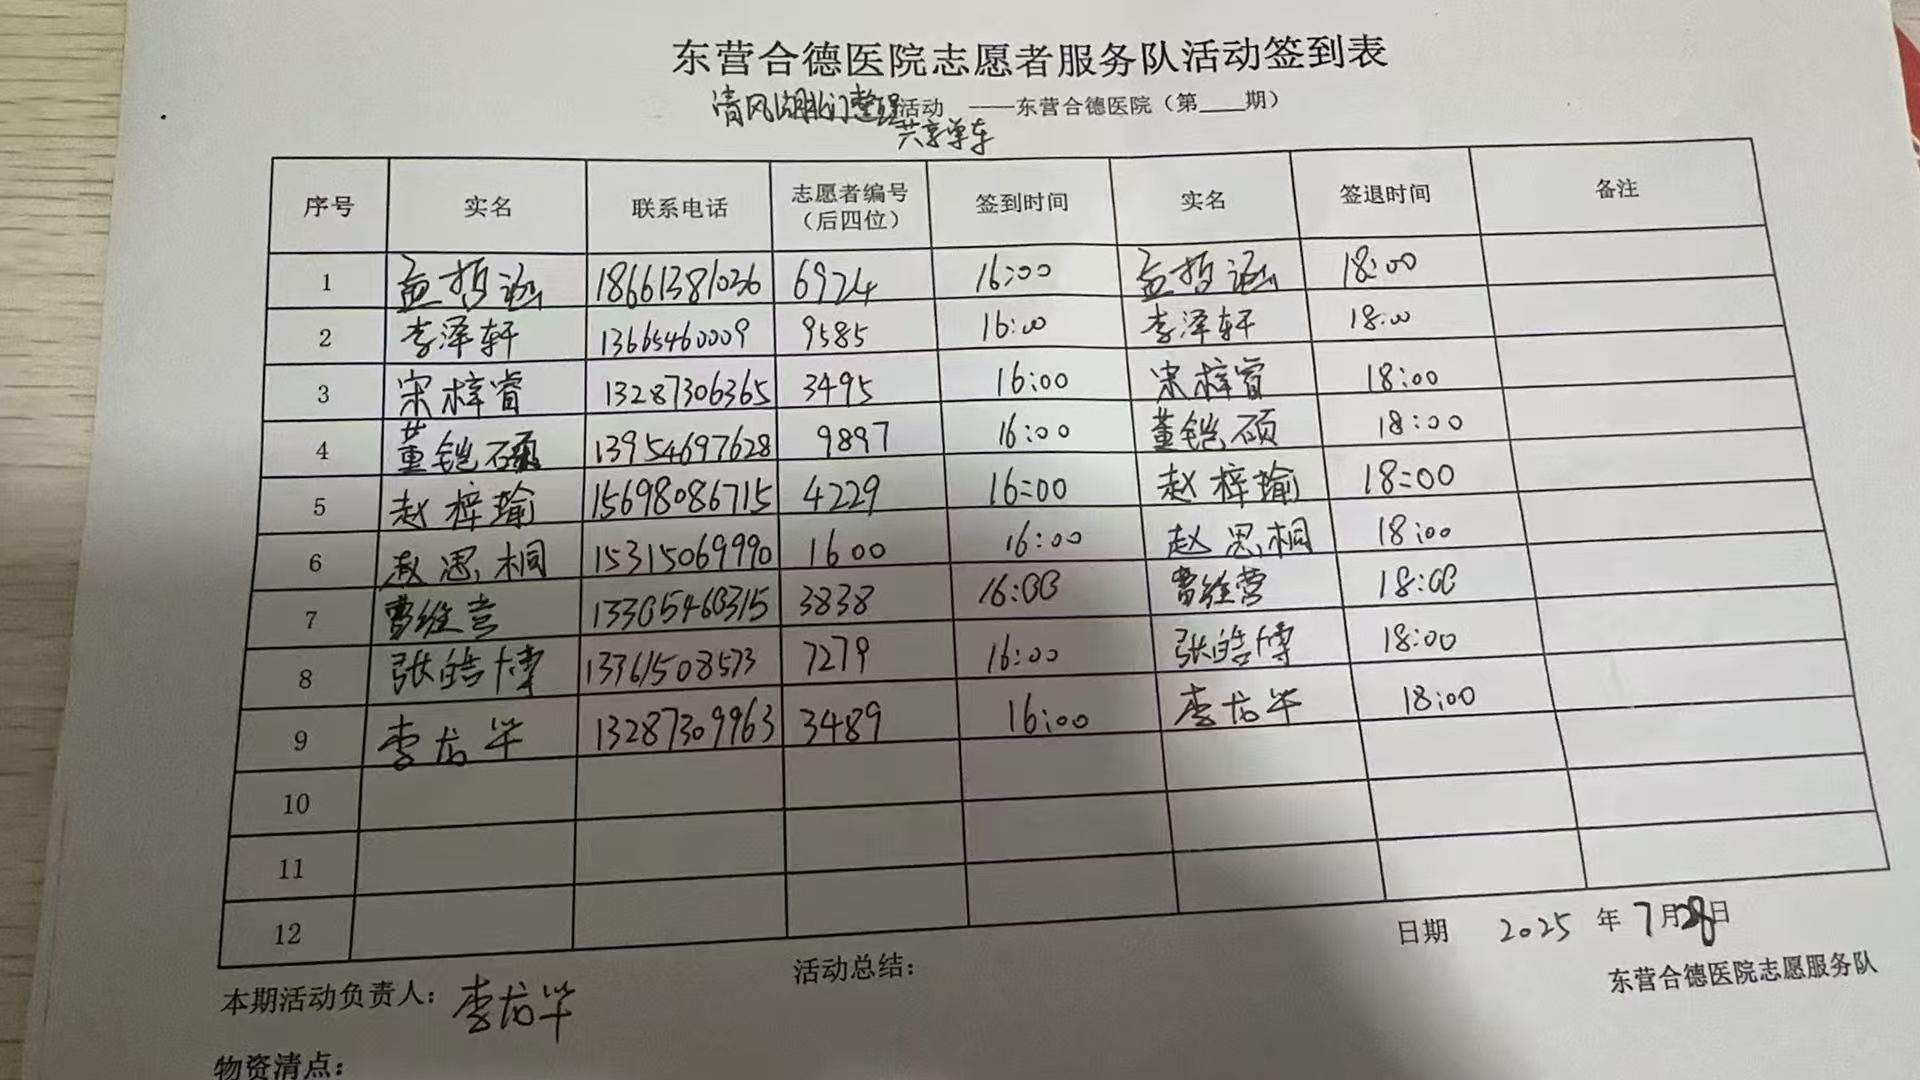 东营合德医院志愿者服务队活动签到表
清风湖北门整理活动 ——东营合德医院（第___期）
共享单车
序号 实名 联系电话 志愿者编号（后四位） 签到时间 实名 签退时间 备注
1 孟哲涵 18661381036 6924 16:00 孟哲涵 18:00
2 李泽轩 13665460009 9585 16:00 李泽轩 18:00
3 宋梓睿 13287306365 3495 16:00 宋梓睿 18:00
4 董铠硕 13954697628 9897 16:00 董铠硕 18:00
5 赵梓瑜 15698086715 4229 16:00 赵梓瑜 18:00
6 赵思桐 15315069990 1600 16:00 赵思桐 18:00
7 曹维营 13305460315 3838 16:00 曹维营 18:00
8 张皓博 13361508573 7279 16:00 张皓博 18:00
9 李龙华 13287309963 3489 16:00 李龙华 18:00
10
11
12
日期 2025 年 7 月 28 日
本期活动负责人：李龙华 活动总结： 东营合德医院志愿服务队
物资清点：